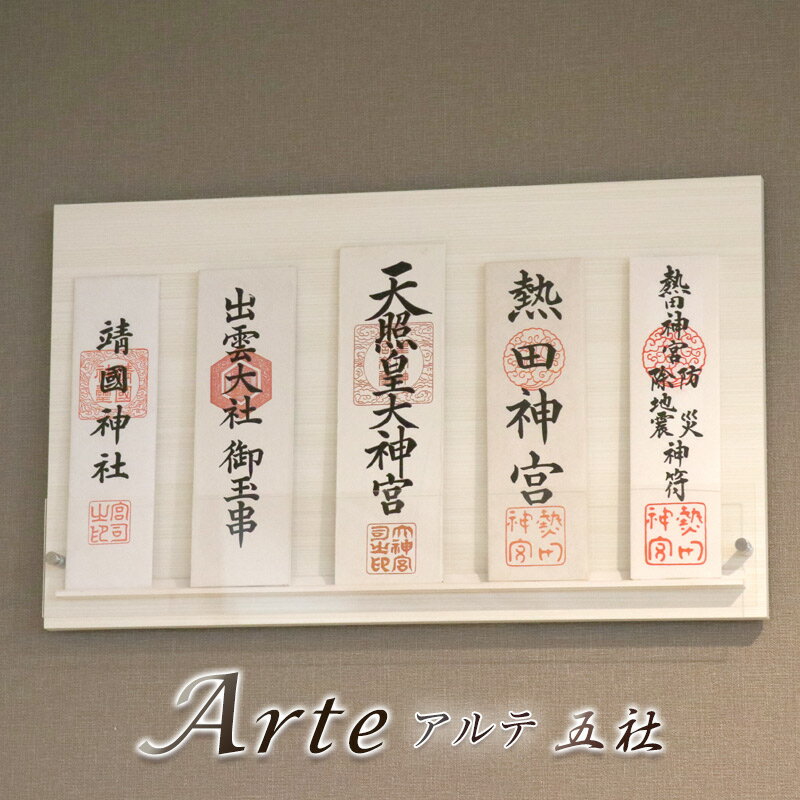 靖國神社
宮司之印
出雲大社御玉串
天照皇大神宮
大神宮司之印
熱田神宮
熱田神宮
熱田神宮防災除地震神符
熱田神宮
Arte アルテ 五社